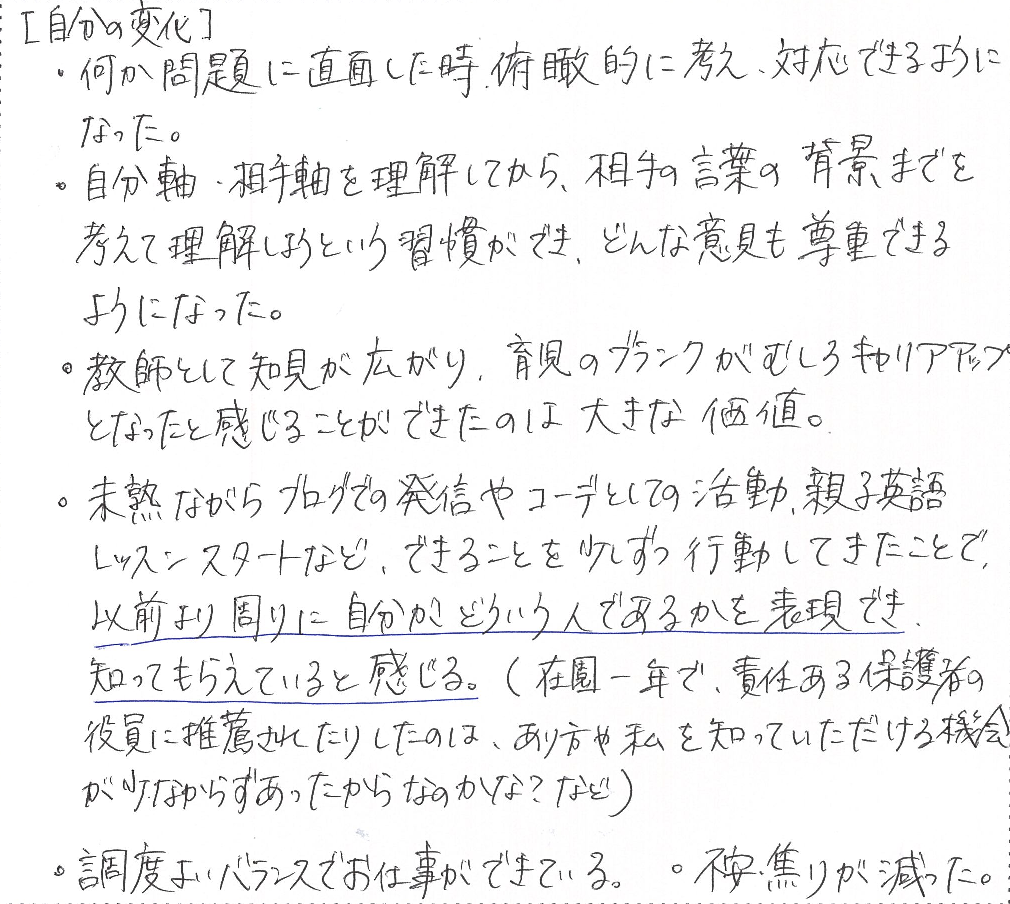 [自分の変化]
・何か問題に直面した時、俯瞰的に考え、対応できるように
なった。
・自分軸・相手軸を理解してから、相手の言葉の背景までを
考えて理解しようという習慣ができ、どんな意見も尊重できる
ようになった。
・教師として知見が広がり、育児のブランクがむしろキャリアアップ
となったと感じることができたのは大きな価値。
・未熟ながらブログでの発信やコーデとしての活動、親子英語
レッスンスタートなど、できることを少しずつ行動してきたことで、
以前より周りに自分がどういう人であるかを表現でき、
知ってもらえていると感じる。(在園一年で、責任ある保護者の
役員に推薦されたりしたのは、あり方や私を知っていただける機会
が少なからずあったからなのかな?など)
・調度よいバランスでお仕事ができている。 ・不安・焦りが減った。